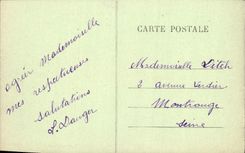 CARTE POSTALE
agréer Mademoiselle
mes respectueuses
salutations
L. Danger
Mademoiselle
3 avenue Verdier
Montrouge
Seine